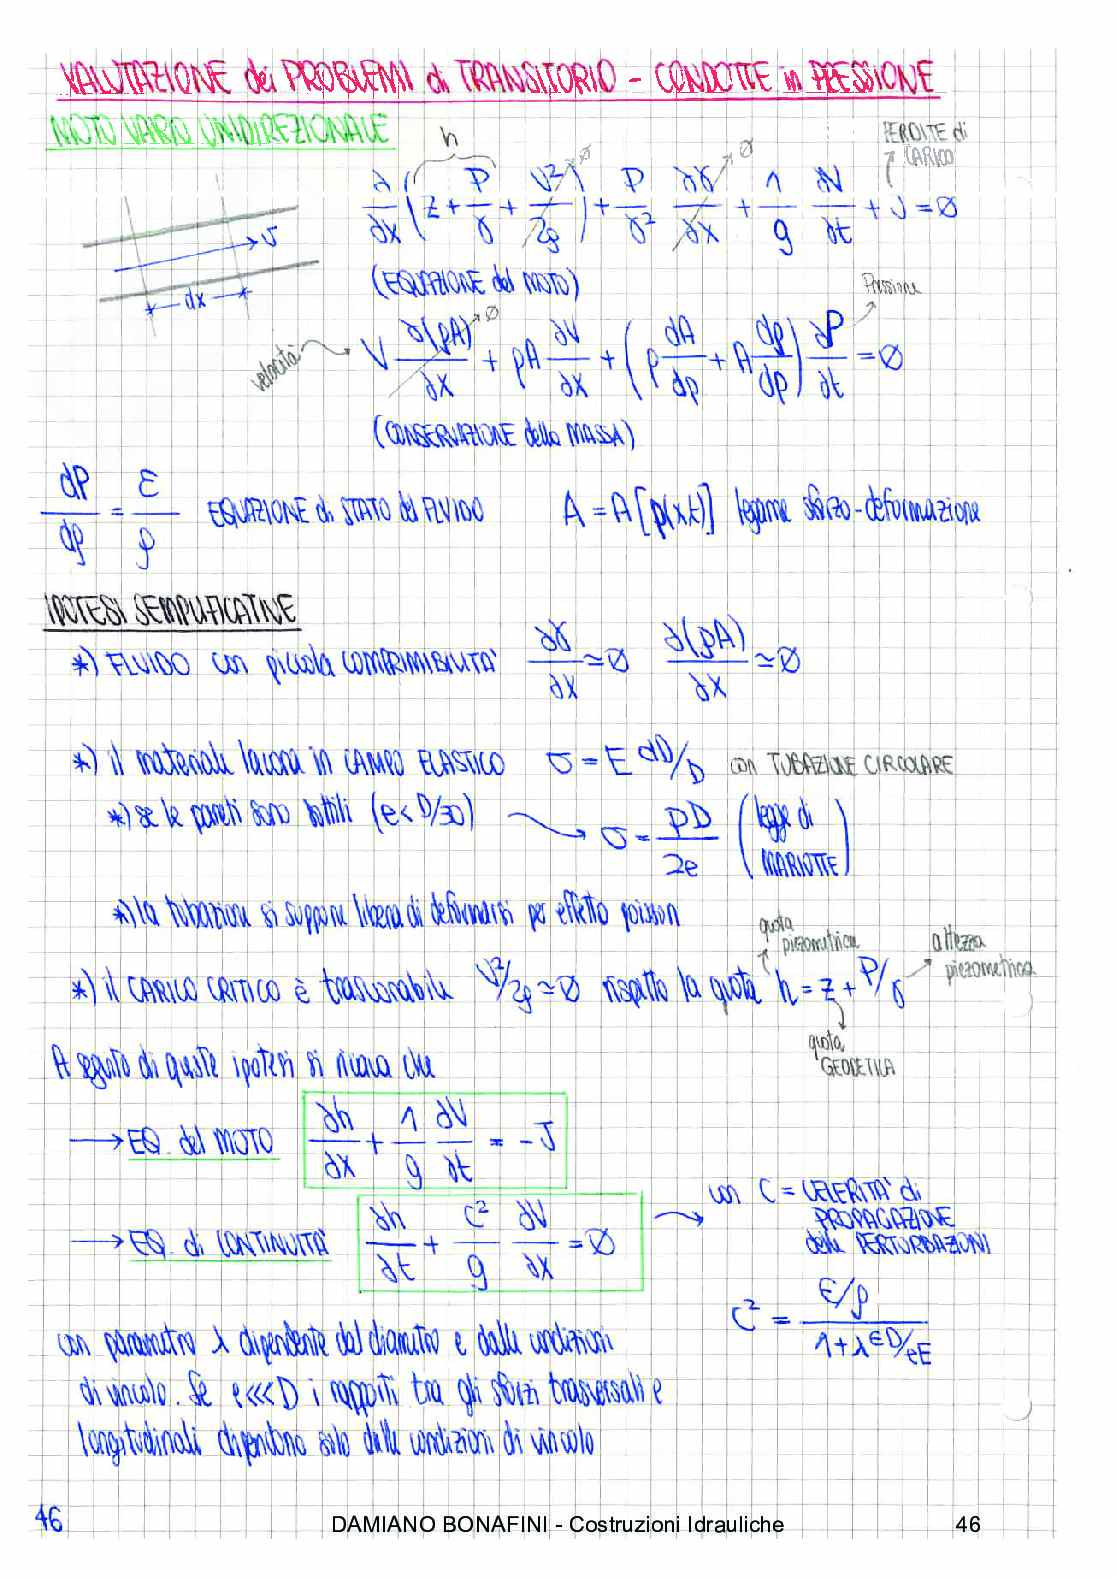 VALUTAZIONE dei PROBLEMI di TRANSITORIO - CONDOTTE in PRESSIONE
MOTO VARIO UNIDIREZIONALE
h
PERDITE di CARICO
∂/∂x (z + P/γ + V²/2g) + P/γ² ∂γ/∂x + 1/g ∂V/∂t + J = Ø
→Ø →Ø
v
dx
(EQUAZIONE del MOTO)
Pressione
velocità
V ∂(ρA)/∂x + ρA ∂V/∂x + (ρ dA/dp + A dρ/dp) ∂P/∂t = Ø
→Ø
(CONSERVAZIONE della MASSA)
dP/dρ = ε/ρ EQUAZIONE di STATO del FLUIDO A = A[p(x,t)] legame sforzo-deformazione
IPOTESI SEMPLIFICATIVE
*) FLUIDO con piccola COMPRIMIBILITA' ∂γ/∂x ≃ Ø ∂(ρA)/∂x ≃ Ø
*) il materiale lavora in CAMPO ELASTICO σ = E dD/D con TUBAZIONE CIRCOLARE
*) se le pareti sono sottili (e < D/30) → σ = PD/2e (legge di MARIOTTE)
*) la tubazione si suppone libera di deformarsi per effetto poisson
quota piezometrica
altezza piezometrica
*) il CARICO CRITICO è trascurabile V²/2g ≃ Ø rispetto la quota h = z + P/γ
quota GEODETICA
A seguito di queste ipotesi si ricava che
→ EQ. del MOTO ∂h/∂x + 1/g ∂V/∂t = - J
→ EQ. di CONTINUITA' ∂h/∂t + C²/g ∂V/∂x = Ø
con C = CELERITA' di PROPAGAZIONE delle PERTURBAZIONI
C² = (ε/ρ)/(1 + λ εD/eE)
con parametro λ dipendente dal diametro e dalle condizioni
di vincolo. Se e <<< D i rapporti tra gli sforzi trasversali e
longitudinali dipendono solo dalle condizioni di vincolo
46
DAMIANO BONAFINI - Costruzioni Idrauliche
46